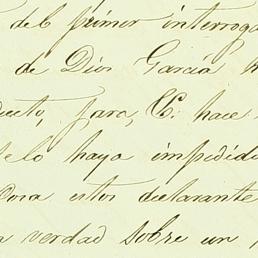 del primer interroga
de Dios García
hace
lo haya impedido
estos declarante
verdad sobre un